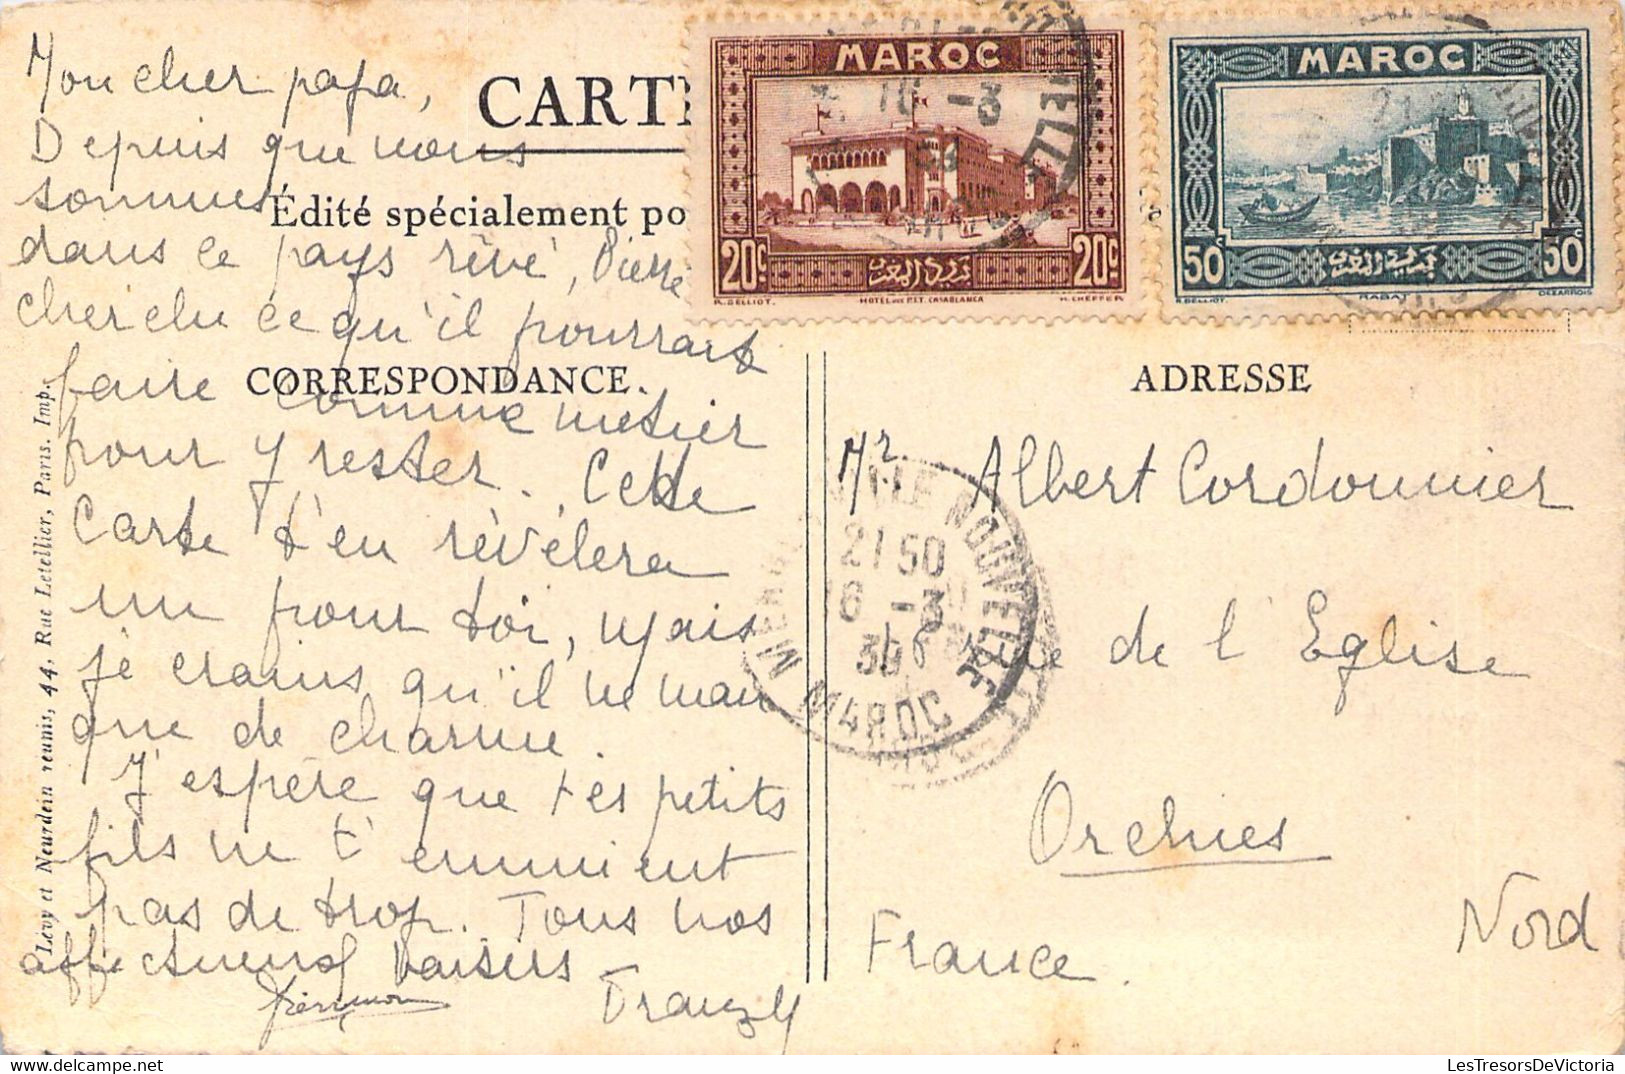 Mon cher papa,
Depuis que nous
sommes
dans ce pays rêvé, Pierre
cherche ce qu'il pourrait
faire comme métier
pour y rester. Cette
Carte t'en révèlera
un pour toi, mais
je crains qu'il ne man
que de charme.
J'espère que tes petits
fils ne t'ennuient
pas de trop. Tous nos
affectueux baisers
Franzy
CARTE
Édité spécialement po
CORRESPONDANCE.
Lévy et Neurdein réunis, 44, Rue Letellier, Paris. Imp.
MAROC
20c 20c
R. BELLIOT. HOTEL DES P.T.T. CASABLANCA H. CHEFFER
MAROC
50c 50c
R. BELLIOT. RABAT DEZARROIS
ADRESSE
VILLE NOUVELLE
21 50
16 -3
38
MAROC
Mr Albert Cordonnier
Rue de l'Eglise
Orchies
Nord
France.
LesTresorsDeVictoria